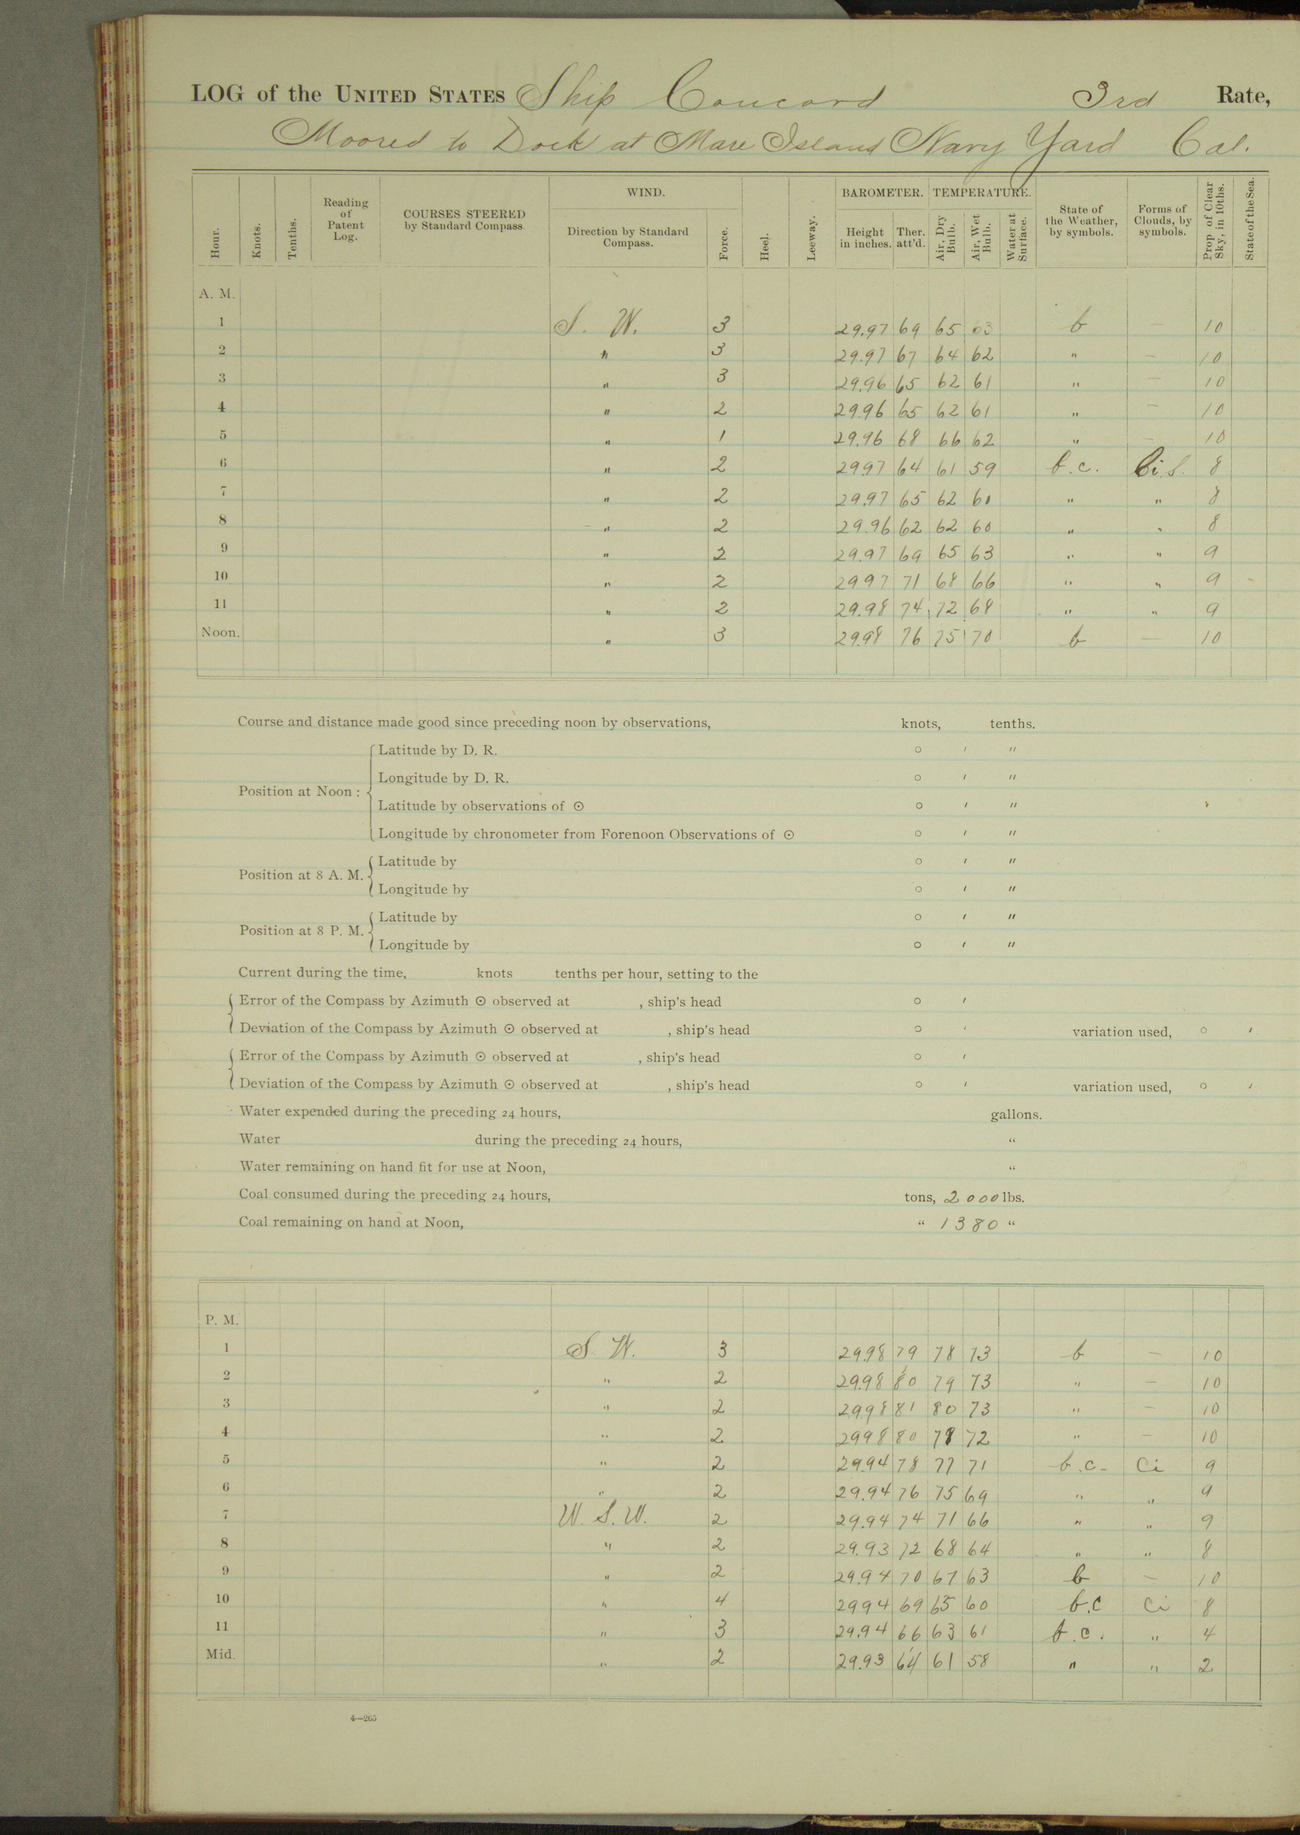 LOG of the UNITED STATES Ship Concord 3rd Rate,
Moored to Dock at Mare Island Navy Yard Cal.
Hour. Knots. Tenths. Reading of Patent Log. COURSES STEERED by Standard Compass WIND. Direction by Standard Compass. Force. Heel. Leeway. BAROMETER. Height in inches. Ther. att'd. TEMPERATURE. Air, Dry Bulb. Air, Wet Bulb. Water at Surface. State of the Weather, by symbols. Forms of Clouds, by symbols. Prop. of Clear Sky, in 10ths. State of the Sea.
A. M.
1 S. W. 3 29.97 69 65 63 b — 10
2 " 3 29.97 67 64 62 " — 10
3 " 3 29.96 65 62 61 " — 10
4 " 2 29.96 65 62 61 " — 10
5 " 1 29.96 68 66 62 " — 10
6 " 2 2997 64 61 59 b.c. Ci.S. 8
7 " 2 29.97 65 62 60 " " 8
8 " 2 29.96 62 62 60 " " 8
9 " 2 29.97 69 65 63 " " 9
10 " 2 2997 71 68 66 " " 9
11 " 2 29.98 74 72 68 " " 9
Noon. " 3 29.98 76 75 70 b — 10
Course and distance made good since preceding noon by observations, knots, tenths.
Position at Noon :
Latitude by D. R. ° ′ ″
Longitude by D. R. ° ′ ″
Latitude by observations of ⊙ ° ′ ″
Longitude by chronometer from Forenoon Observations of ⊙ ° ′ ″
Position at 8 A. M.
Latitude by ° ′ ″
Longitude by ° ′ ″
Position at 8 P. M.
Latitude by ° ′ ″
Longitude by ° ′ ″
Current during the time, knots tenths per hour, setting to the
Error of the Compass by Azimuth ⊙ observed at , ship's head ° ′
Deviation of the Compass by Azimuth ⊙ observed at , ship's head ° ′ variation used, ° ′
Error of the Compass by Azimuth ⊙ observed at , ship's head ° ′
Deviation of the Compass by Azimuth ⊙ observed at , ship's head ° ′ variation used, ° ′
Water expended during the preceding 24 hours, gallons.
Water during the preceding 24 hours, "
Water remaining on hand fit for use at Noon, "
Coal consumed during the preceding 24 hours, tons, 2000 lbs.
Coal remaining on hand at Noon, " 1380 "
P. M.
1 S. W. 3 29.98 79 78 73 b — 10
2 " 2 29.98 80 79 73 " — 10
3 " 2 2998 81 80 73 " — 10
4 " 2 2998 80 78 72 " — 10
5 " 2 29.94 78 77 71 b.c. Ci 9
6 " 2 29.94 76 75 69 " " 9
7 W. S. W. 2 29.94 74 71 66 " " 9
8 " 2 29.93 72 68 64 " " 8
9 " 2 29.94 70 67 63 b — 10
10 " 4 2994 69 65 60 b.c Ci 8
11 " 3 29.94 66 63 61 b.c. " 4
Mid. " 2 29.93 64 61 58 " " 2
4—265